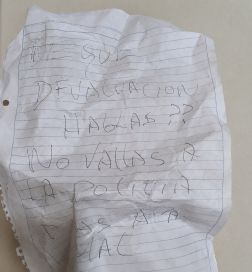 DE QUE
DEVALUACION
HABLAS??
NO VALLAS A
LA POLICIA
MAL